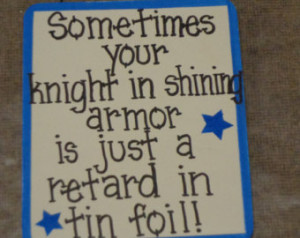 Sometimes
your
knight in shining
armor
is just a
retard in
tin foil!